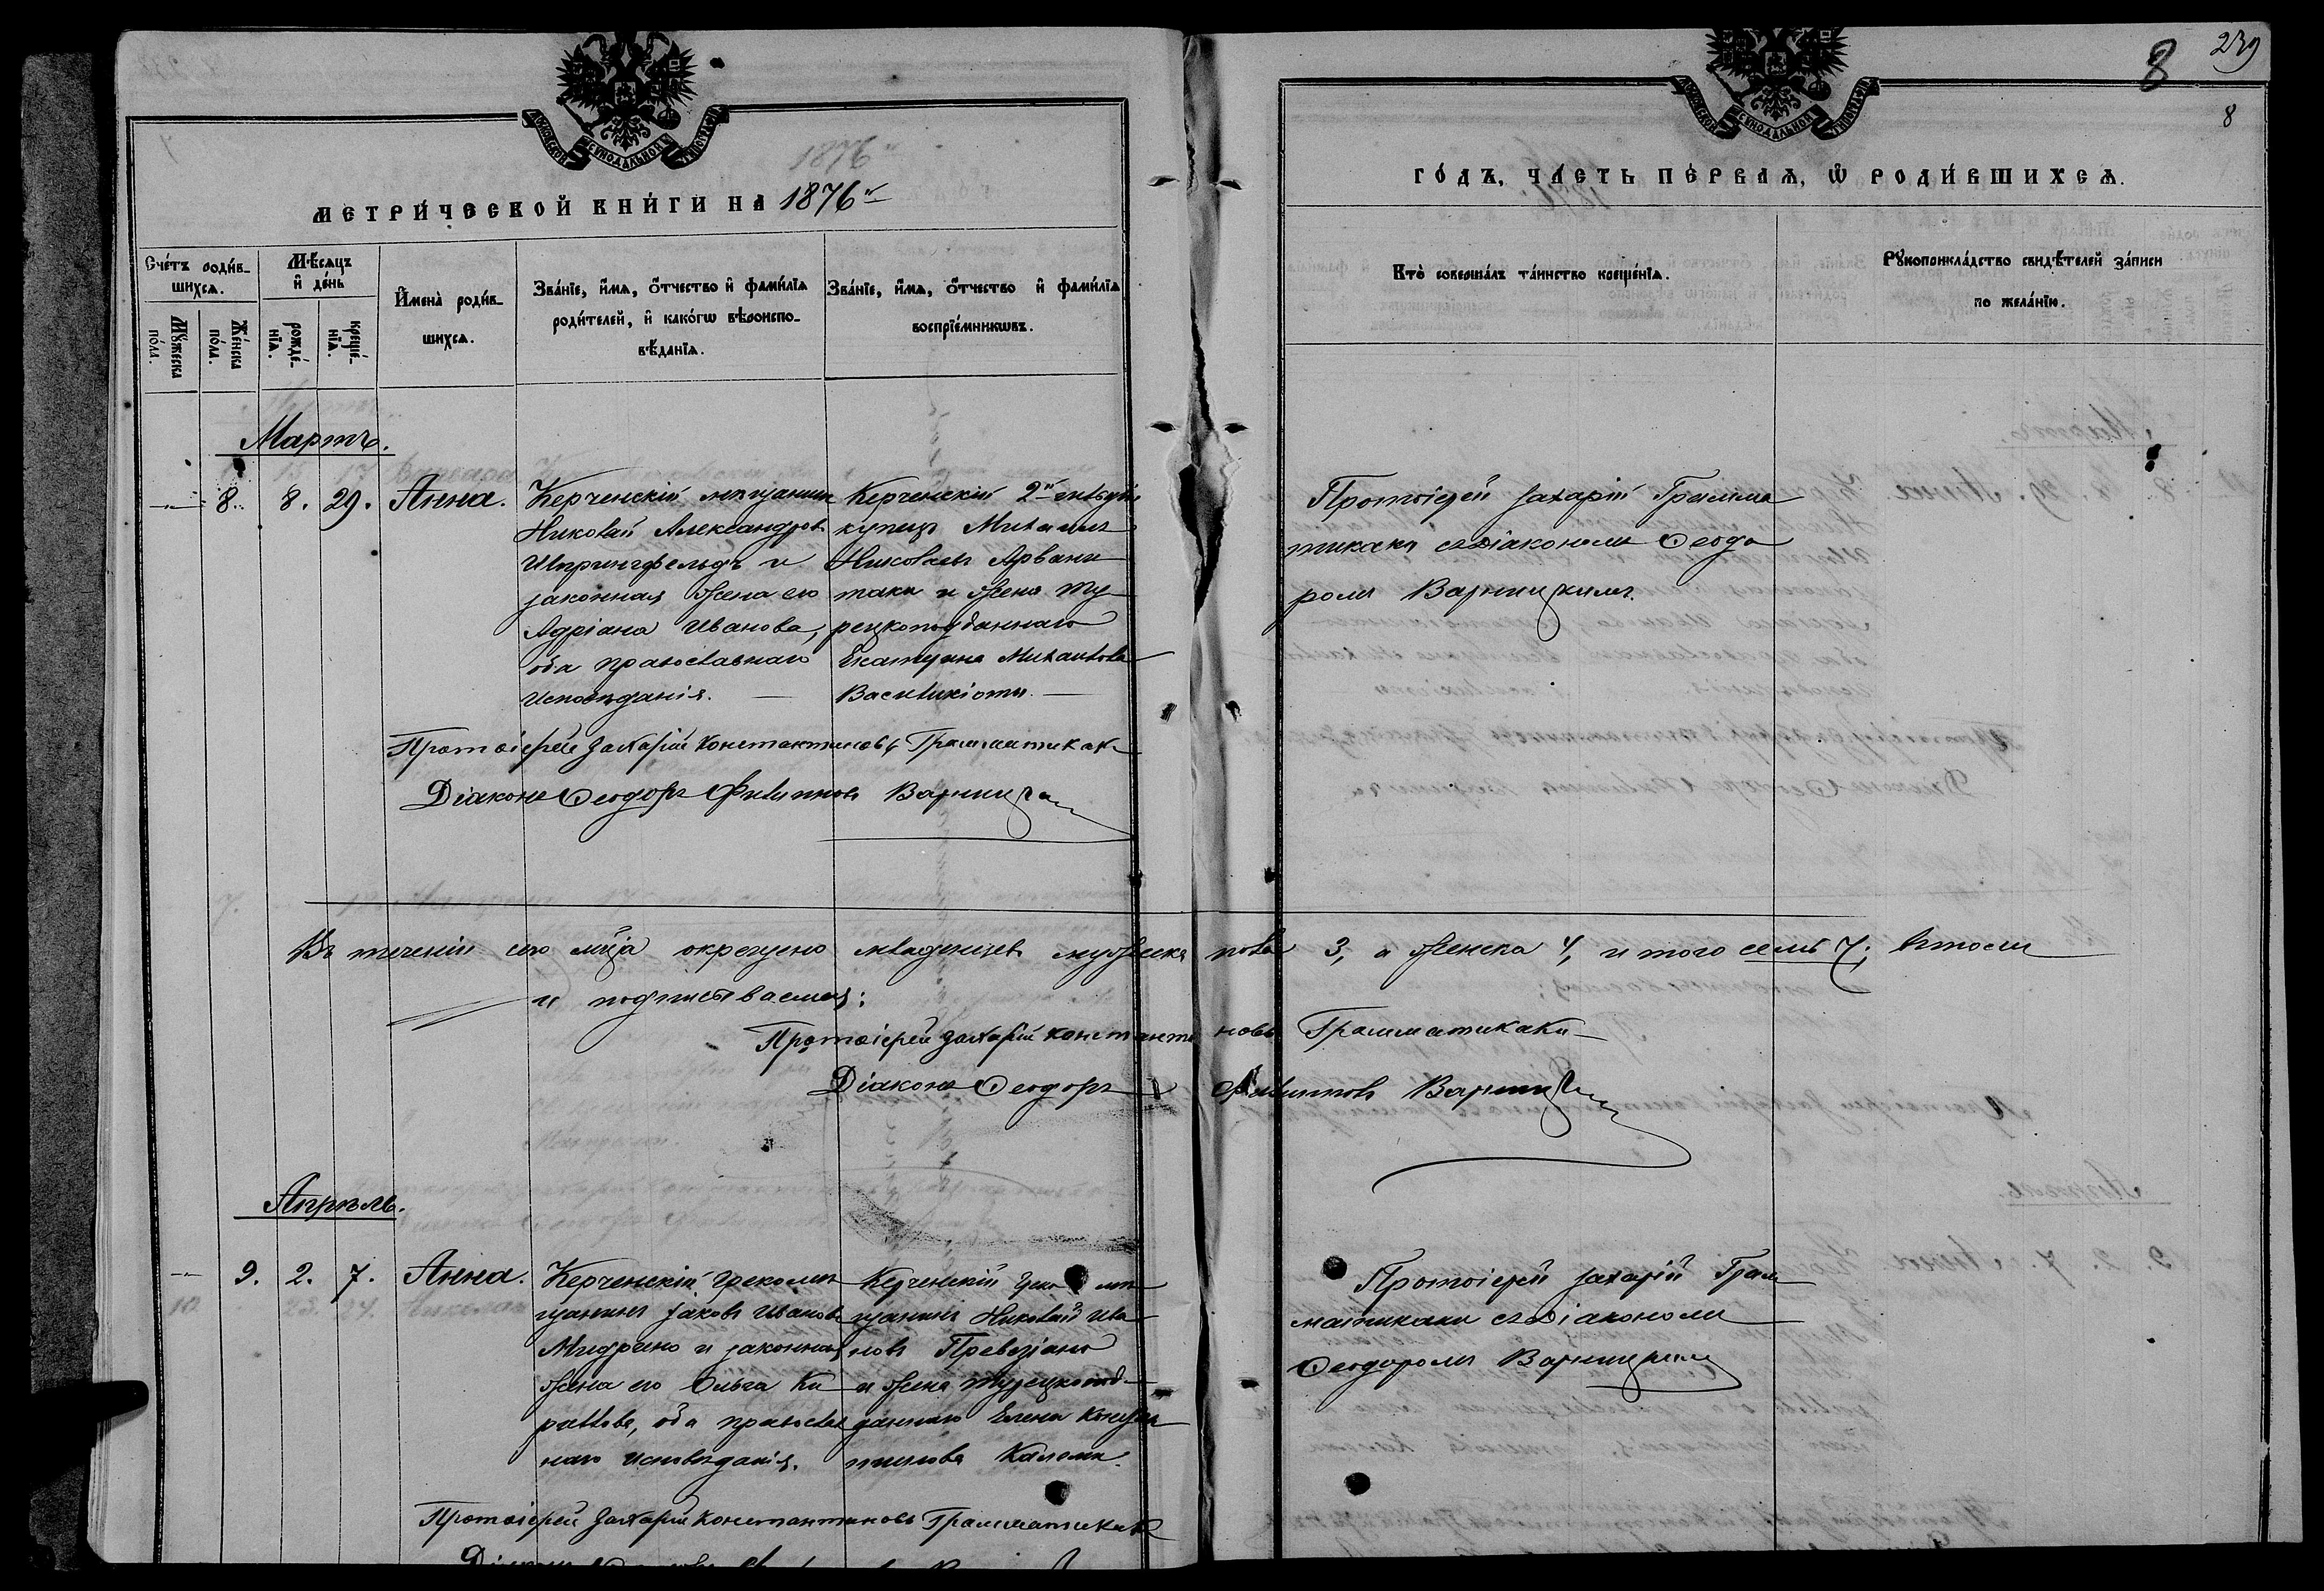 239
8
8
МОСКОВСКОЙ СѴНОДАЛЬНОЙ ТИПОГРАФІИ
МОСКОВСКОЙ СѴНОДАЛЬНОЙ ТИПОГРАФІИ
МЕТРИ́ЧЕСКОЙ КНИ́ГИ НА 1876й
ГО́ДЪ, ЧА́СТЬ ПЕ́РВАѦ, Ѡ РОДИ́ВШИХСѦ.
Сче́тъ роди́в-
шихсѧ.
Мꙋ́жеска по́ла.
Же́нска по́ла.
Мѣ́сѧцъ и де́нь
рожде́-нїѧ.
креще́-нїѧ.
И҆мена̀ роди́в-
шихсѧ.
Зва́нїе, и҆́мѧ, ѻ҆́тчество и҆ фами́лїѧ
роди́телей, и҆ како́гѡ вѣроиспо-
вѣ́данїѧ.
Зва́нїе, и҆́мѧ, ѻ҆́тчество и҆ фами́лїѧ
воспрїе́мникѡвъ.
Кто̀ соверша́лъ та́инство креще́нїѧ.
Рꙋкоприкла́дство свидѣ́телей за́писи
по жела́нїю.
Мартъ.
— 8. 8. 29. Анна.
Керченскій мѣщанинъ
Николай Александровъ
Шпрингфельдъ и
законная жена его
Адріана Иванова,
оба православнаго
исповѣданія. —
Керченскій 2й гильдіи
купецъ Михаилъ
Николаевъ Арвани
таки и жена ту
рецкоподданнаго
Екатерина Михаилова
Василикіоти. —
Протоіерей Захарій Грамма
тикаки съ діакономъ Ѳеодо
ромъ Варницкимъ.
Протоіерей Захарій Константиновъ Грамматикаки
Діаконъ Ѳеодоръ Филипповъ Варницкій
Въ теченіи сего мѣсяца окрещено младенцевъ мужеска пола 3, а женска 4, и того семь 7; въ томъ
и подписываемся:
Протоіерей Захарій Константиновъ Грамматикаки
Діаконъ Ѳеодоръ Филипповъ Варницкій
Апрѣль.
— 9. 2. 7. Анна.
Керченскій грекомѣ
щанинъ Яковъ Ивановъ
и законная
жена его Ольга Ки
риллова, оба православ
наго исповѣданія.
Керченскій греко мѣ
щанинъ Николай Ива
новъ Превезіано
и жена турецкопод
даннаго Елена Констан
тинова
Протоіерей Захарій Грам
матикаки съ діакономъ
Ѳеодоромъ Варницкимъ
Протоіерей Захарій Константиновъ Грамматикаки